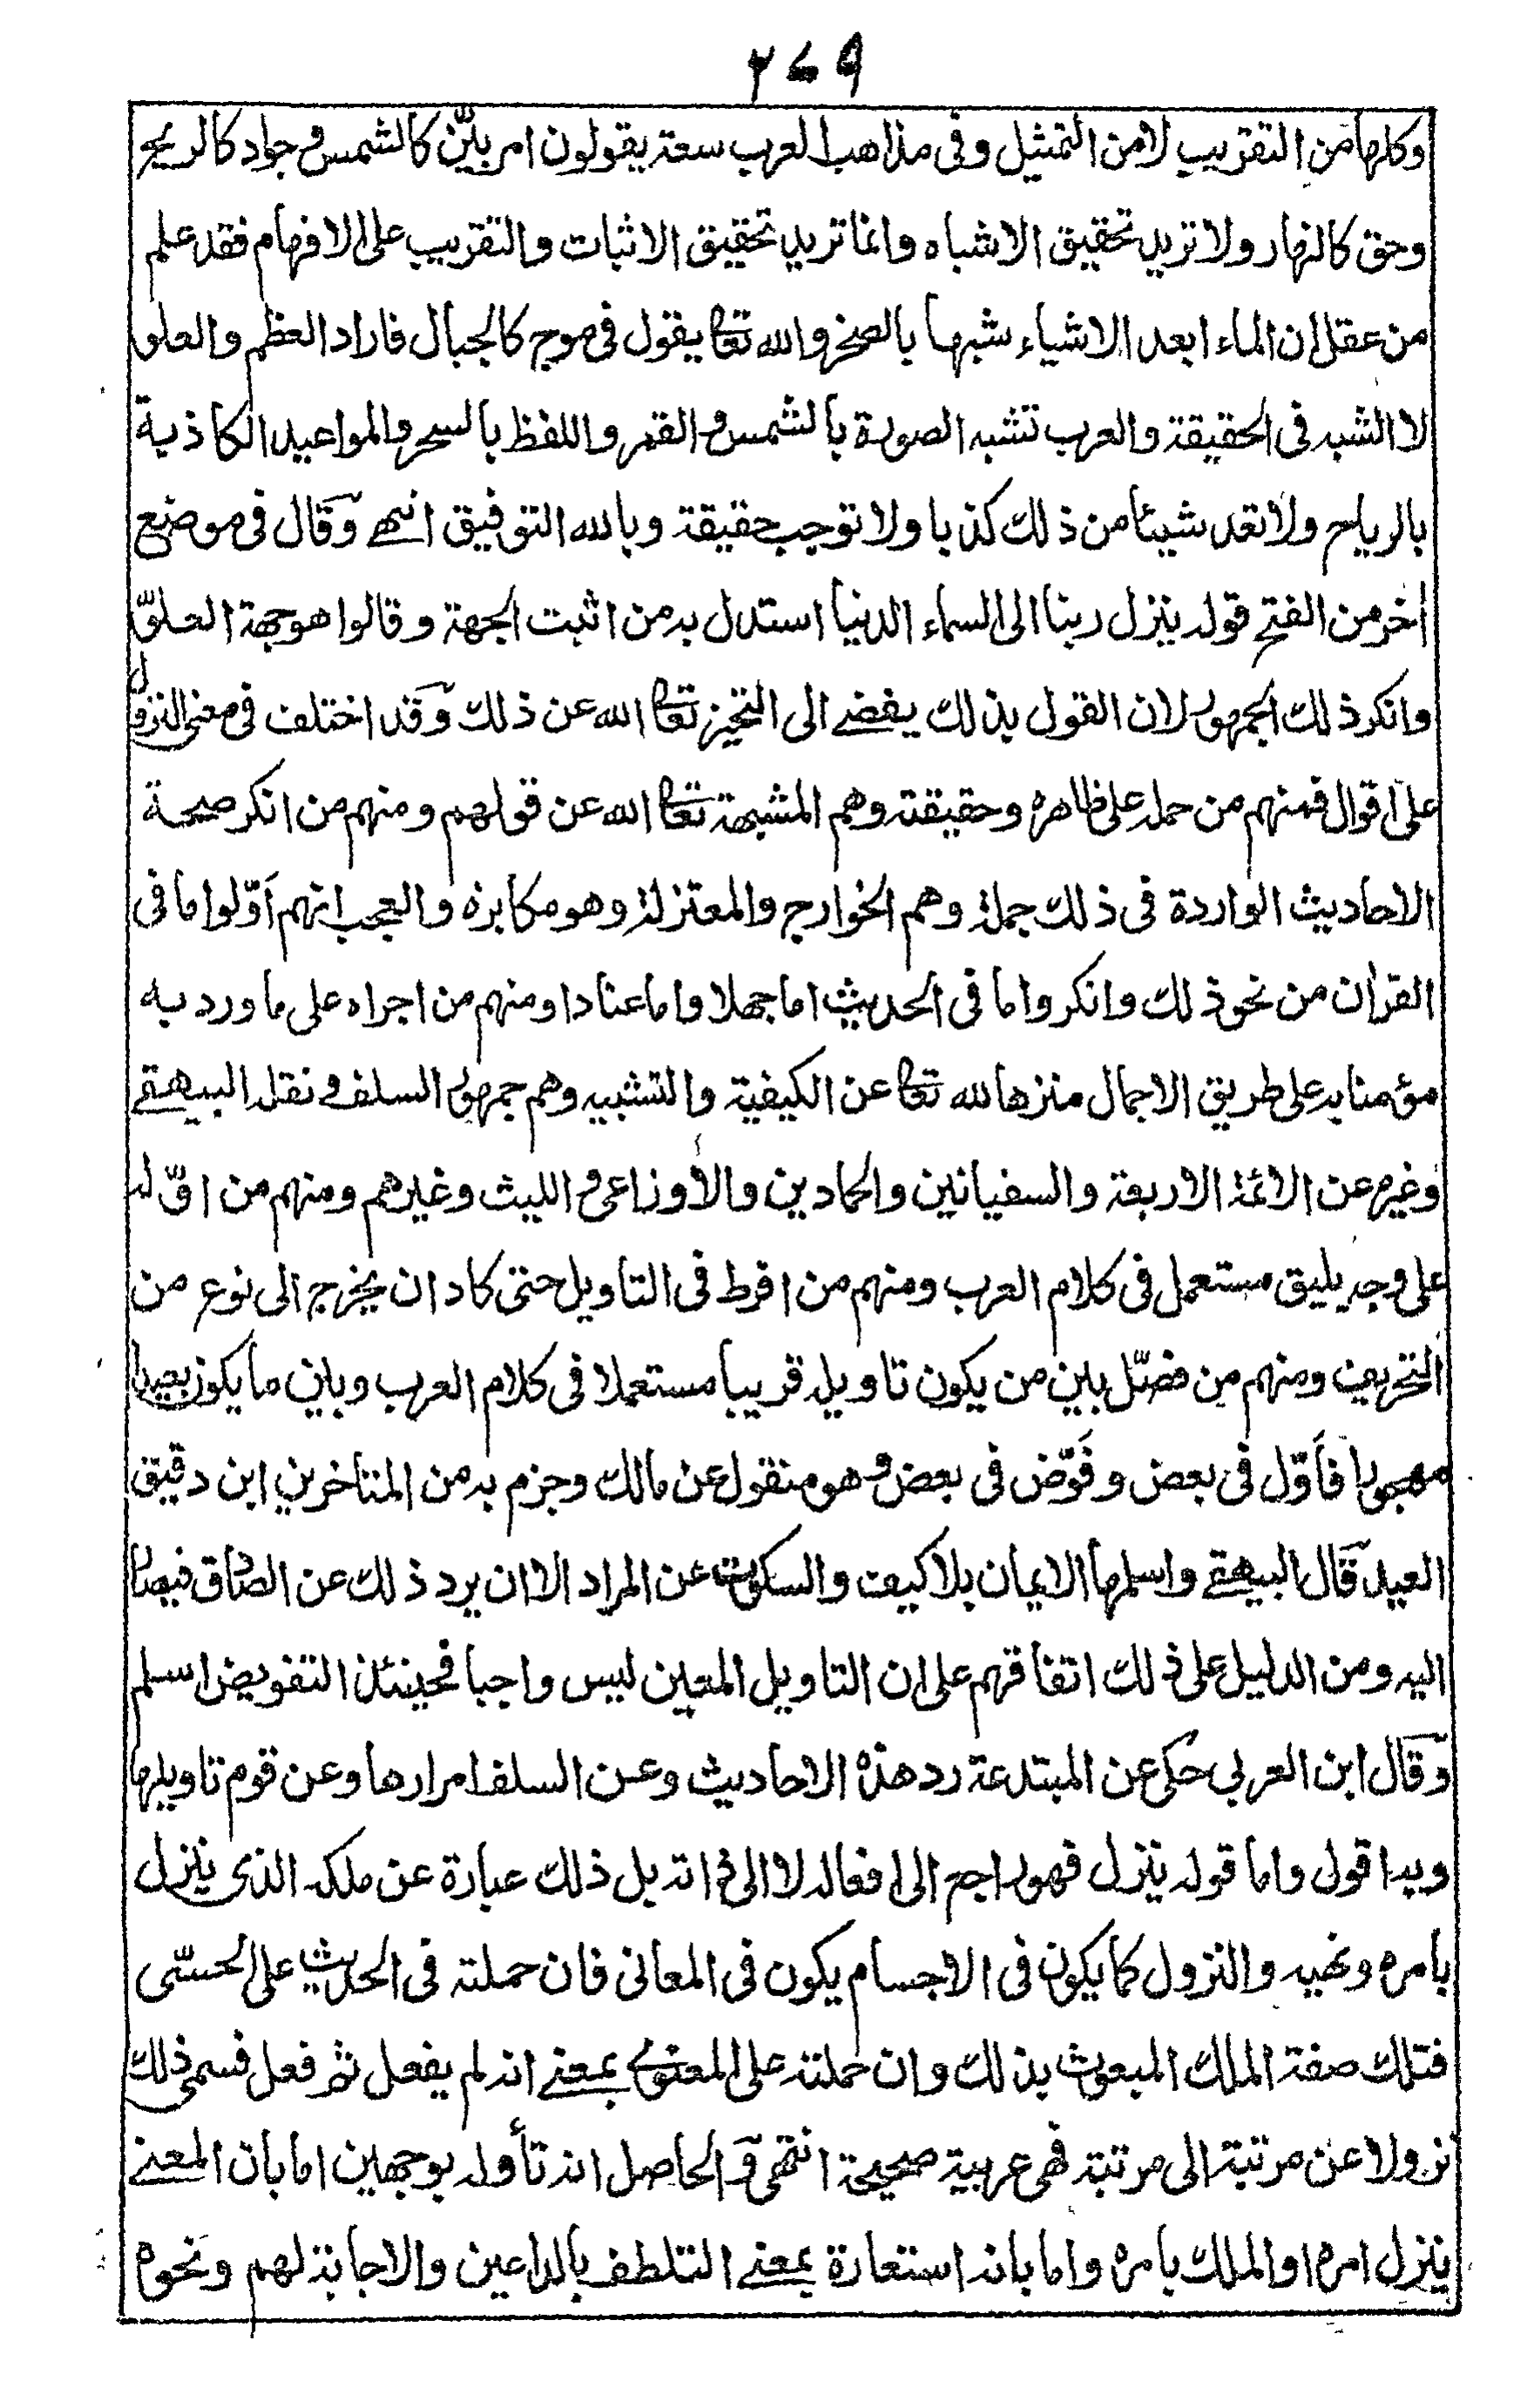 ٢٧٩
وكلها من التقريب لا من التمثيل وفى مذاهب العرب سعة يقولون امر بيّن كالشمس وجواد كالريح
وحق كالنهار ولا تريد تحقيق الاشباه وانما تريد تحقيق الاثبات والتقريب على الافهام فقد علم
من عقل ان الماء ابعد الاشياء شبها بالصخر والله تعا يقول فى موج كالجبال فاراد العظم والعلو
لا الشبه فى الحقيقة والعرب تشبه الصورة بالشمس والقمر واللفظ بالسحر والمواعيد الكاذبة
بالرياح ولا تعد شيئا من ذلك كذبا ولا توجب حقيقة وبالله التوفيق انتهے وقال فى موضع
اخر من الفتح قوله ينزل ربنا الى السماء الدنيا استدل به من اثبت الجهة وقالوا هو جهة العلوّ
وانكر ذلك الجمهور لان القول بذلك يفضے الى التحيز تعا الله عن ذلك وقد اختلف فى معنى النزول
على اقوال فمنهم من حمله على ظاهره وحقيقته وهم المشبهة تعا الله عن قولهم ومنهم من انكر صحة
الاحاديث الواردة فى ذلك جملة وهم الخوارج والمعتزلة وهو مكابرة والعجب انهم اَوّلوا ما فى
القران من نحو ذلك وانكروا ما فى الحديث اما جهلا واما عنادا ومنهم من اجراه على ما ورد به
مؤمنا به على طريق الاجمال منزها لله تعا عن الكيفية والتشبيه وهم جمهور السلف ونقله البيهقے
وغيره عن الائمة الاربعة والسفيانين والحمادين والاوزاعى والليث وغيرهم ومنهم من اوّله
على وجه يليق مستعمل فى كلام العرب ومنهم من افرط فى التاويل حتى كاد ان يخرج الى نوع من
التحريف ومنهم من فصّل بين من يكون تاويله قريبا مستعملا فى كلام العرب وبين ما يكون بعيدا
مهجورا فاَوّل فى بعض وفَوّض فى بعض وهو منقول عن مالك وجزم به من المتاخرين ابن دقيق
العيد قال البيهقے واسلمها الايمان بلا كيف والسكوت عن المراد الا ان يرد ذلك عن الصادق فيصار
اليه ومن الدليل على ذلك اتفاقهم على ان التاويل المعين ليس واجبا فحينئذ التفويض اسلم
وقال ابن العربى حكى عن المبتدعة رد هذه الاحاديث وعن السلف امرارها وعن قوم تاويلها
وبه اقول واما قوله ينزل فهو راجع الى افعاله لا الى ذاته بل ذلك عبارة عن ملكه الذى ينزل
بامره ونهيه والنزول كما يكون فى الاجسام يكون فى المعانى فان حملته فى الحديث على الحسّى
فتلك صفة الملك المبعوث بذلك وان حملته على المعنوے بمعنے انه لم يفعل ثم فعل فسمى ذلك
نزولا عن مرتبة الى مرتبة فهى عربية صحيحة انتهى والحاصل انه تأوله بوجهين اما بان المعنے
ينزل امره او الملك بامره واما بانه استعارة بمعنے التلطف بالداعين والاجابة لهم ونحوه